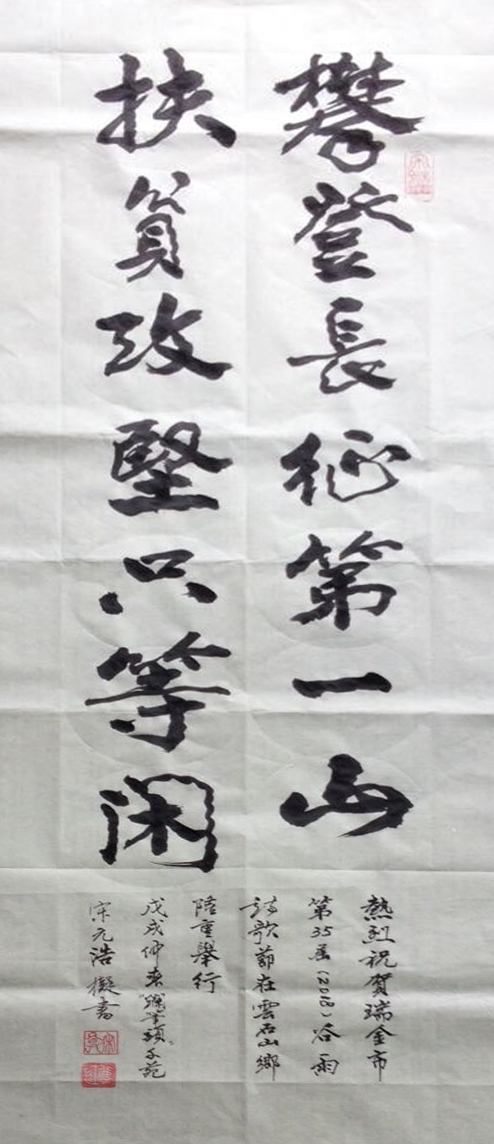 攀登長征第一山
扶貧攻堅只等闲
熱烈祝賀瑞金市
第35届(2018)谷雨
詩歌節在雲石山鄉
隆重舉行
戊戌仲春
宋元浩撰書